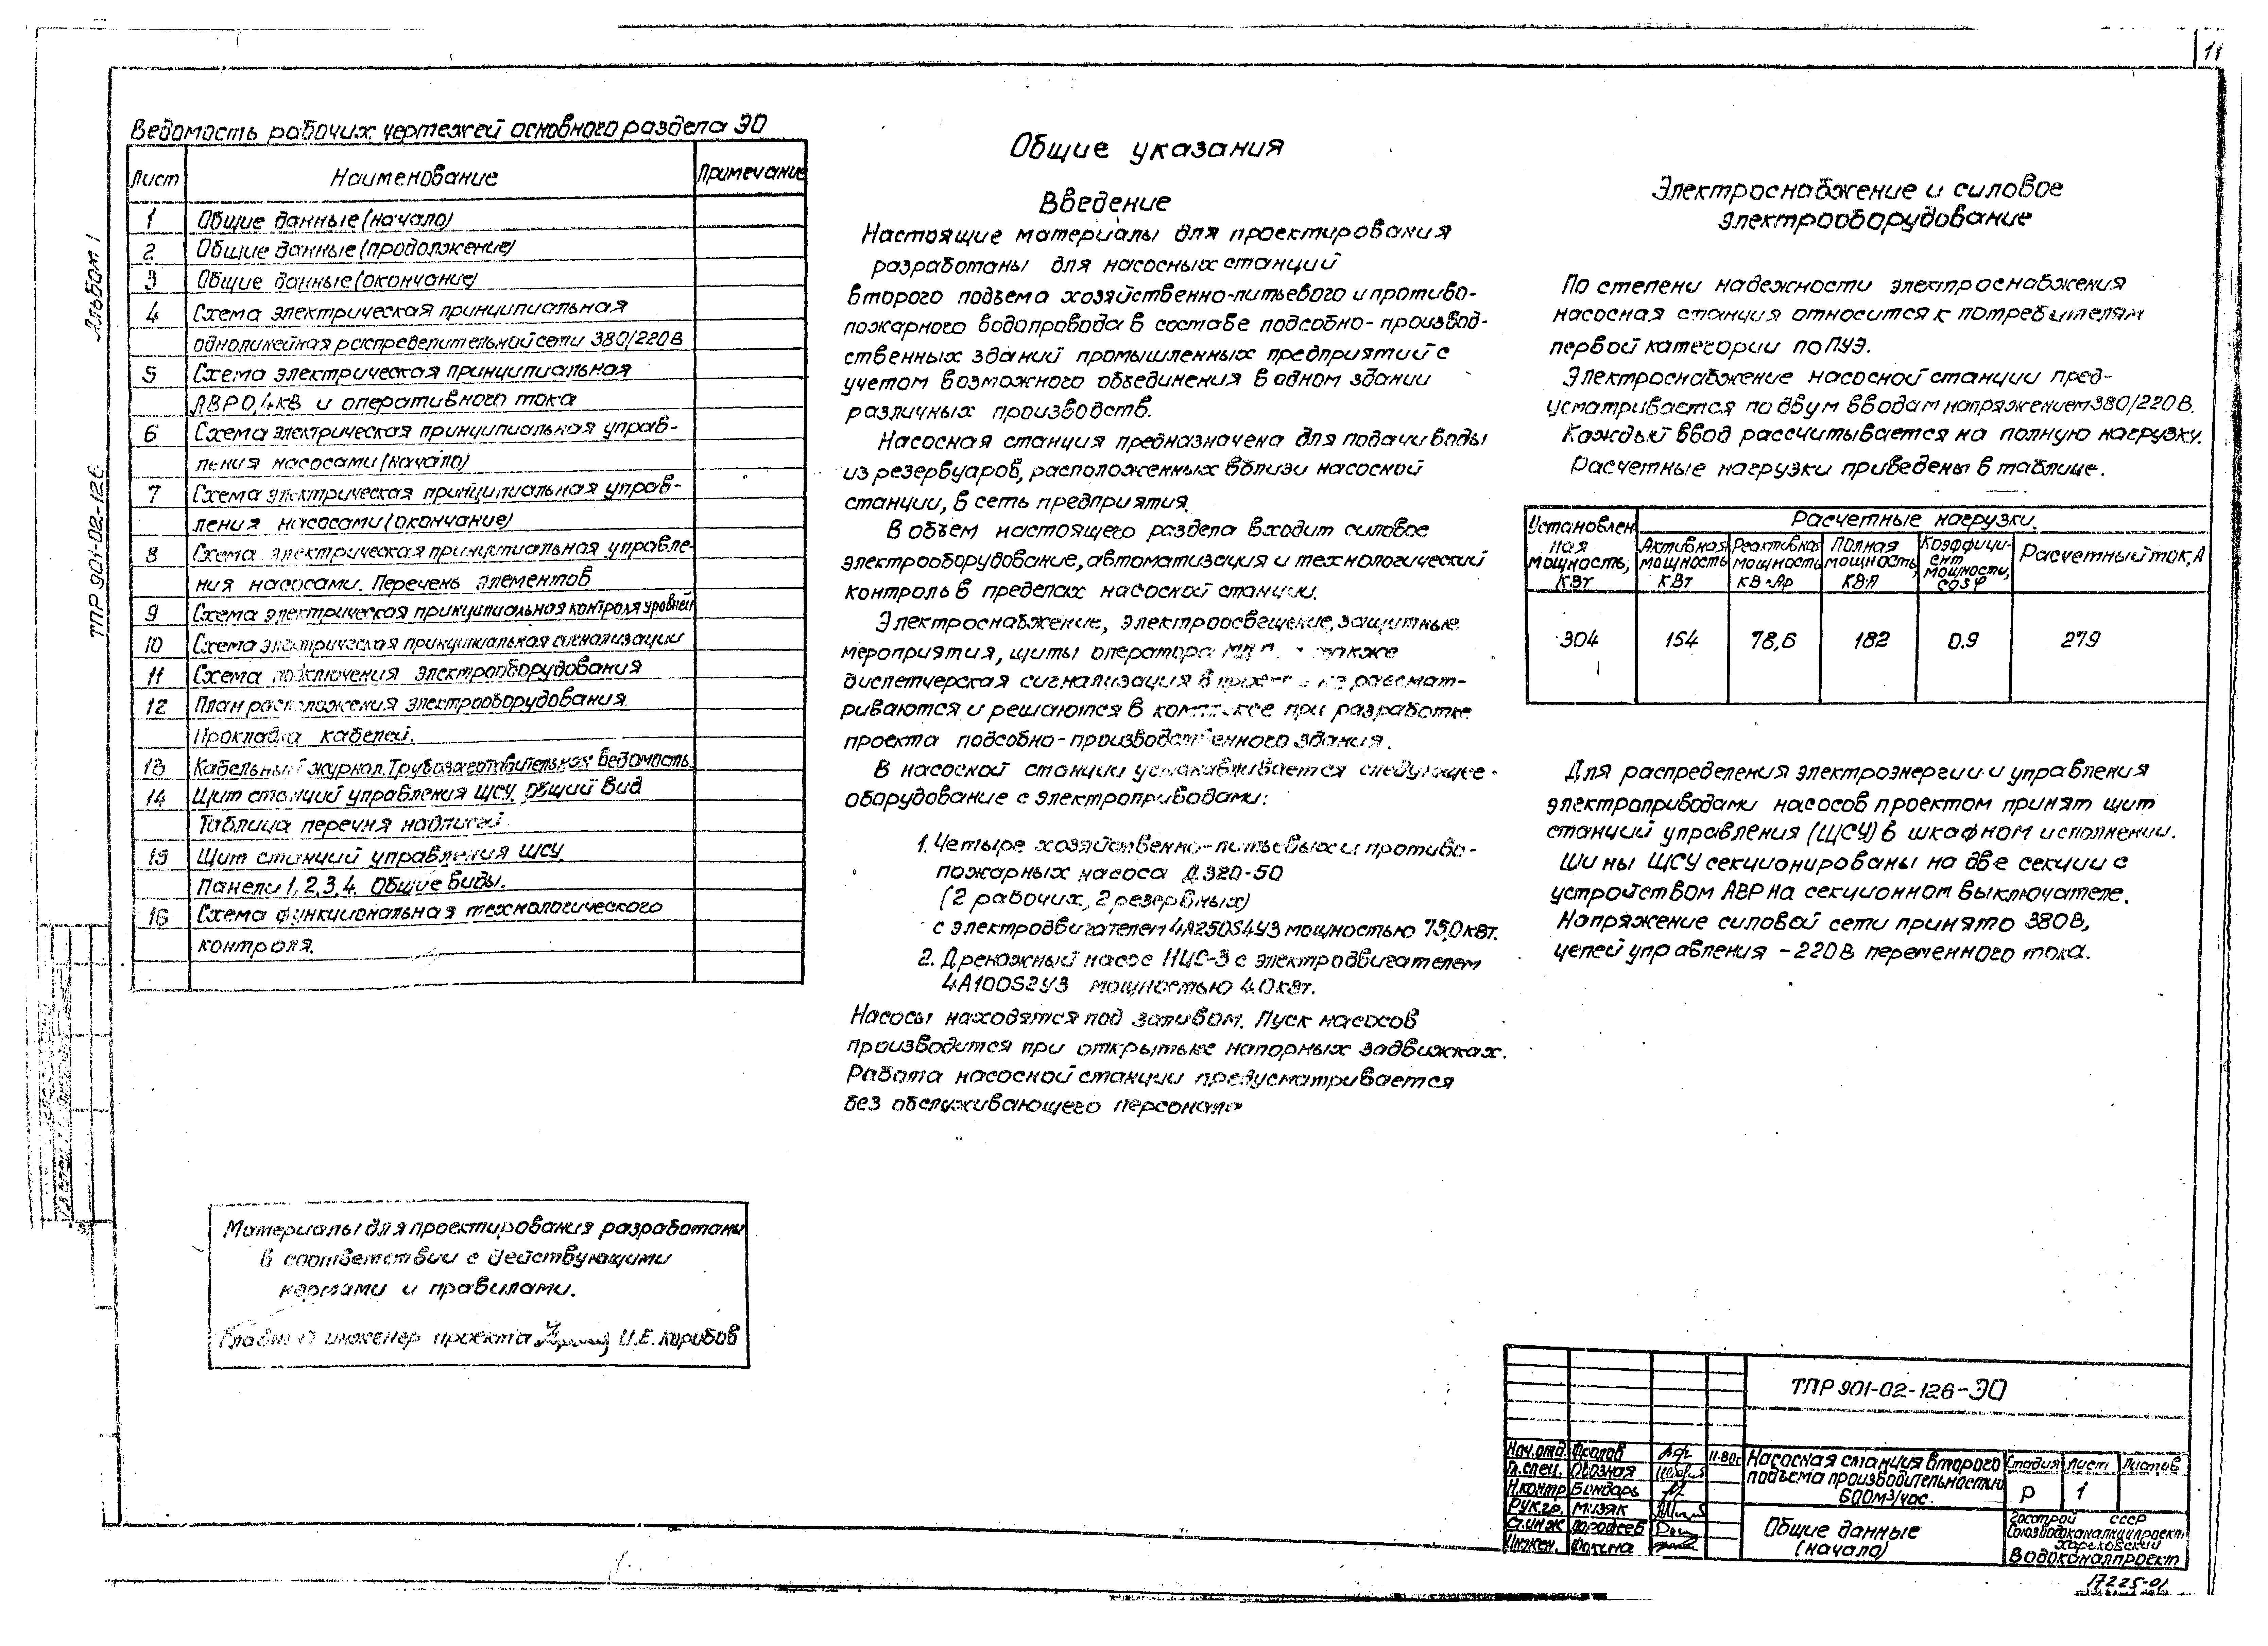 11
Альбом 1
ТПР 901-02-126
Ведомость рабочих чертежей основного раздела ЭО
Лист Наименование Примечание
1 Общие данные (начало)
2 Общие данные (продолжение)
3 Общие данные (окончание)
4 Схема электрическая принципиальная
однолинейная распределительной сети 380/220В
5 Схема электрическая принципиальная
АВР 0,4кВ и оперативного тока
6 Схема электрическая принципиальная управ-
ления насосами (начало)
7 Схема электрическая принципиальная управ-
ления насосами (окончание)
8 Схема электрическая принципиальная управле-
ния насосами. Перечень элементов
9 Схема электрическая принципиальная контроля уровней
10 Схема электрическая принципиальная сигнализации
11 Схема подключения электрооборудования
12 План расположения электрооборудования
Прокладка кабелей.
13 Кабельный журнал. Трубозаготовительная ведомость
14 Щит станций управления ЩСУ. Общий вид
Таблица перечня надписей
15 Щит станций управления ЩСУ
Панели 1, 2, 3, 4. Общие виды.
16 Схема функциональная технологического
контроля.
Материалы для проектирования разработаны
в соответствии с действующими
нормами и правилами.
Главный инженер проекта И.Е. Коробов
Общие указания
Введение
Настоящие материалы для проектирования
разработаны для насосных станций
второго подъема хозяйственно-питьевого и противо-
пожарного водопровода в составе подсобно-производ-
ственных зданий промышленных предприятий с
учетом возможного объединения в одном здании
различных производств.
Насосная станция предназначена для подачи воды
из резервуаров, расположенных вблизи насосной
станции, в сеть предприятия.
В объем настоящего раздела входит силовое
электрооборудование, автоматизация и технологический
контроль в пределах насосной станции.
Электроснабжение, электроосвещение, защитные
мероприятия, щиты оператора а также
диспетчерская сигнализация в проекте не рассмат-
риваются и решаются в комплексе при разработке
проекта подсобно-производственного здания.
В насосной станции устанавливается следующее
оборудование с электроприводами:
1. Четыре хозяйственно-питьевых и противо-
пожарных насоса Д 320-50
(2 рабочих, 2 резервных)
с электродвигателем 4А250S4У3 мощностью 75,0 кВт.
2. Дренажный насос НЦС-3 с электродвигателем
4А100S2У3 мощностью 4.0 кВт.
Насосы находятся под заливом. Пуск насосов
производится при открытых напорных задвижках.
Работа насосной станции предусматривается
без обслуживающего персонала
Электроснабжение и силовое
электрооборудование
По степени надежности электроснабжения
насосная станция относится к потребителям
первой категории по ПУЭ.
Электроснабжение насосной станции пред-
усматривается по двум вводам напряжением 380/220В.
Каждый ввод рассчитывается на полную нагрузку.
Расчетные нагрузки приведены в таблице.
Установлен Расчетные нагрузки.
ная мощность, кВт Активная мощность кВт Реактивная мощность кВАр Полная мощность, кВА Коэффици-ент мощности, cosφ Расчетный ток, А
304 154 78,6 182 0.9 279
Для распределения электроэнергии и управления
электроприводами насосов проектом принят щит
станций управления (ЩСУ) в шкафном исполнении.
Шины ЩСУ секционированы на две секции с
устройством АВР на секционном выключателе.
Напряжение силовой сети принято 380В,
цепей управления - 220В переменного тока.
ТПР 901-02-126-ЭО
Нач.отд. Фролов 11-80г
Гл.спец. Овозная
Н.контр Бондарь
Рук.гр. Мизяк
Ст.инж
Инжен. Фокина
Насосная станция второго
подъема производительностью
600м3/час.
Стадия Лист Листов
Р 1
Общие данные
(начало)
Госстрой СССР
Союзводоканалниипроект
Харьковский
Водоканалпроект
17225-01